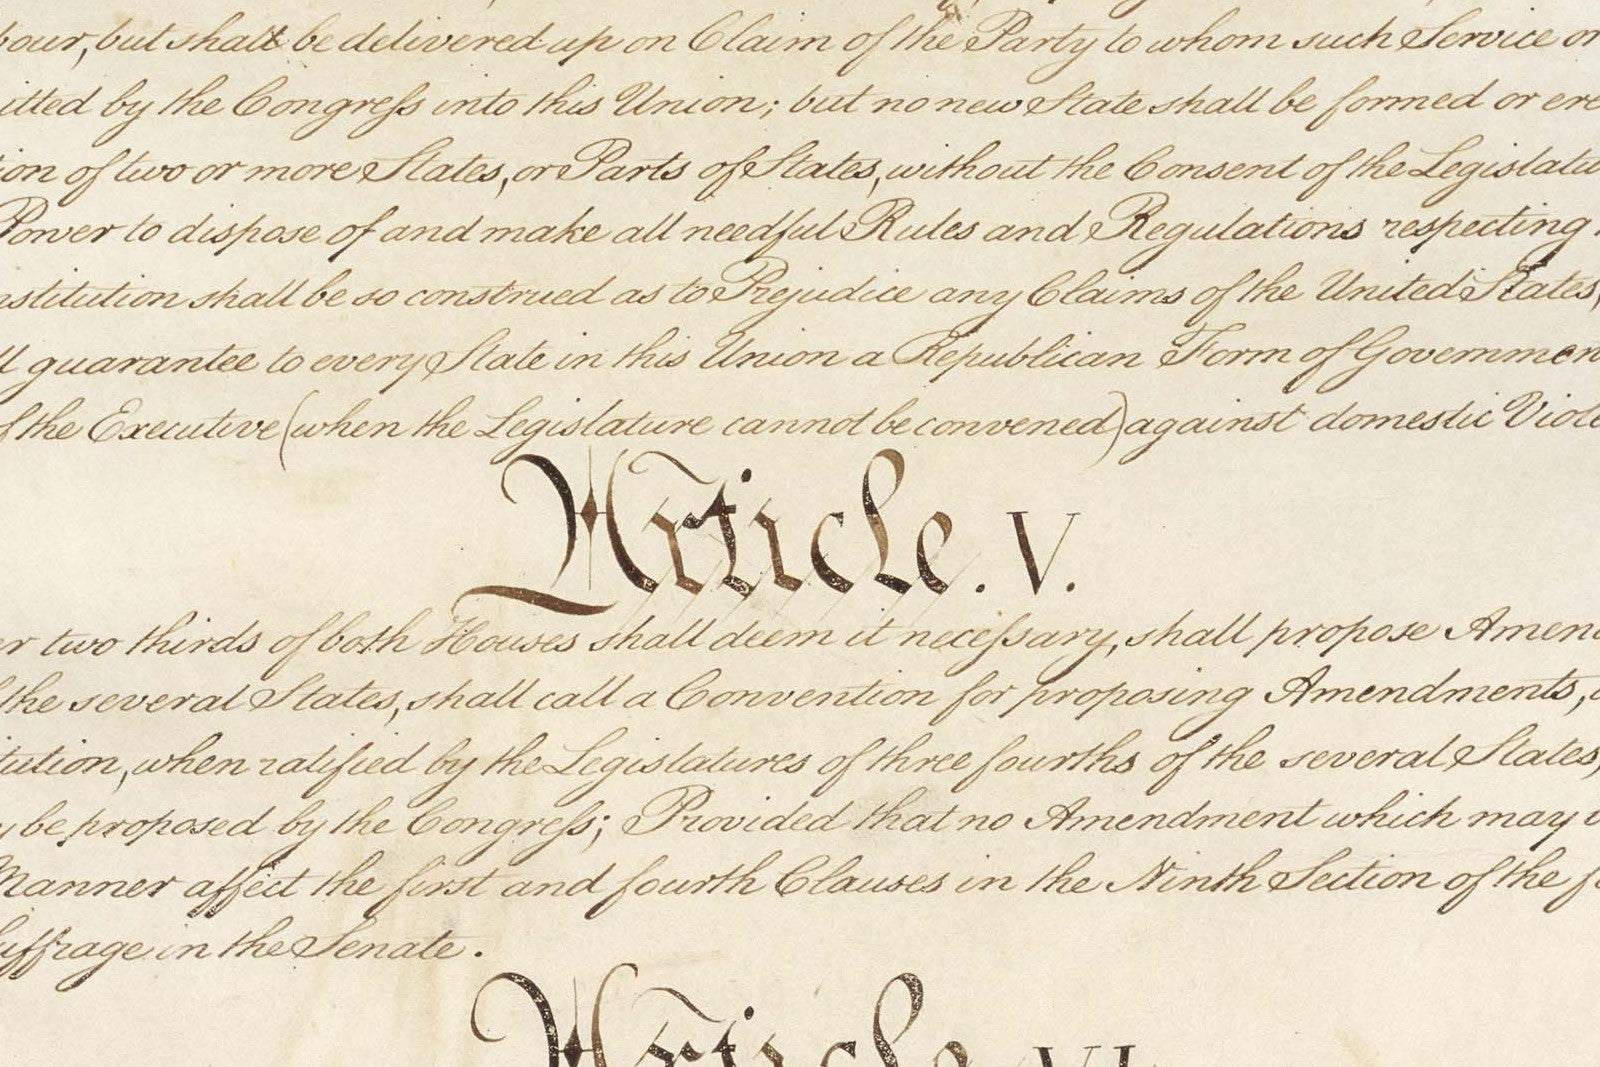 bour, but shall be delivered up on Claim of the Party to whom such Service or
itted by the Congress into this Union; but no new State shall be formed or ere
ion of two or more States, or Parts of States, without the Consent of the Legislatu
Power to dispose of and make all needful Rules and Regulations respecting
nstitution shall be so construed as to Prejudice any Claims of the United States,
ll guarantee to every State in this Union a Republican Form of Governmen
f the Executive (when the Legislature cannot be convened) against domestic Viole
Article. V.
er two thirds of both Houses shall deem it necessary, shall propose Amend
f the several States, shall call a Convention for proposing Amendments,
tution, when ratified by the Legislatures of three fourths of the several States,
y be proposed by the Congress; Provided that no Amendment which may
Manner affect the first and fourth Clauses in the Ninth Section of the f
Suffrage in the Senate.
Article. VI.